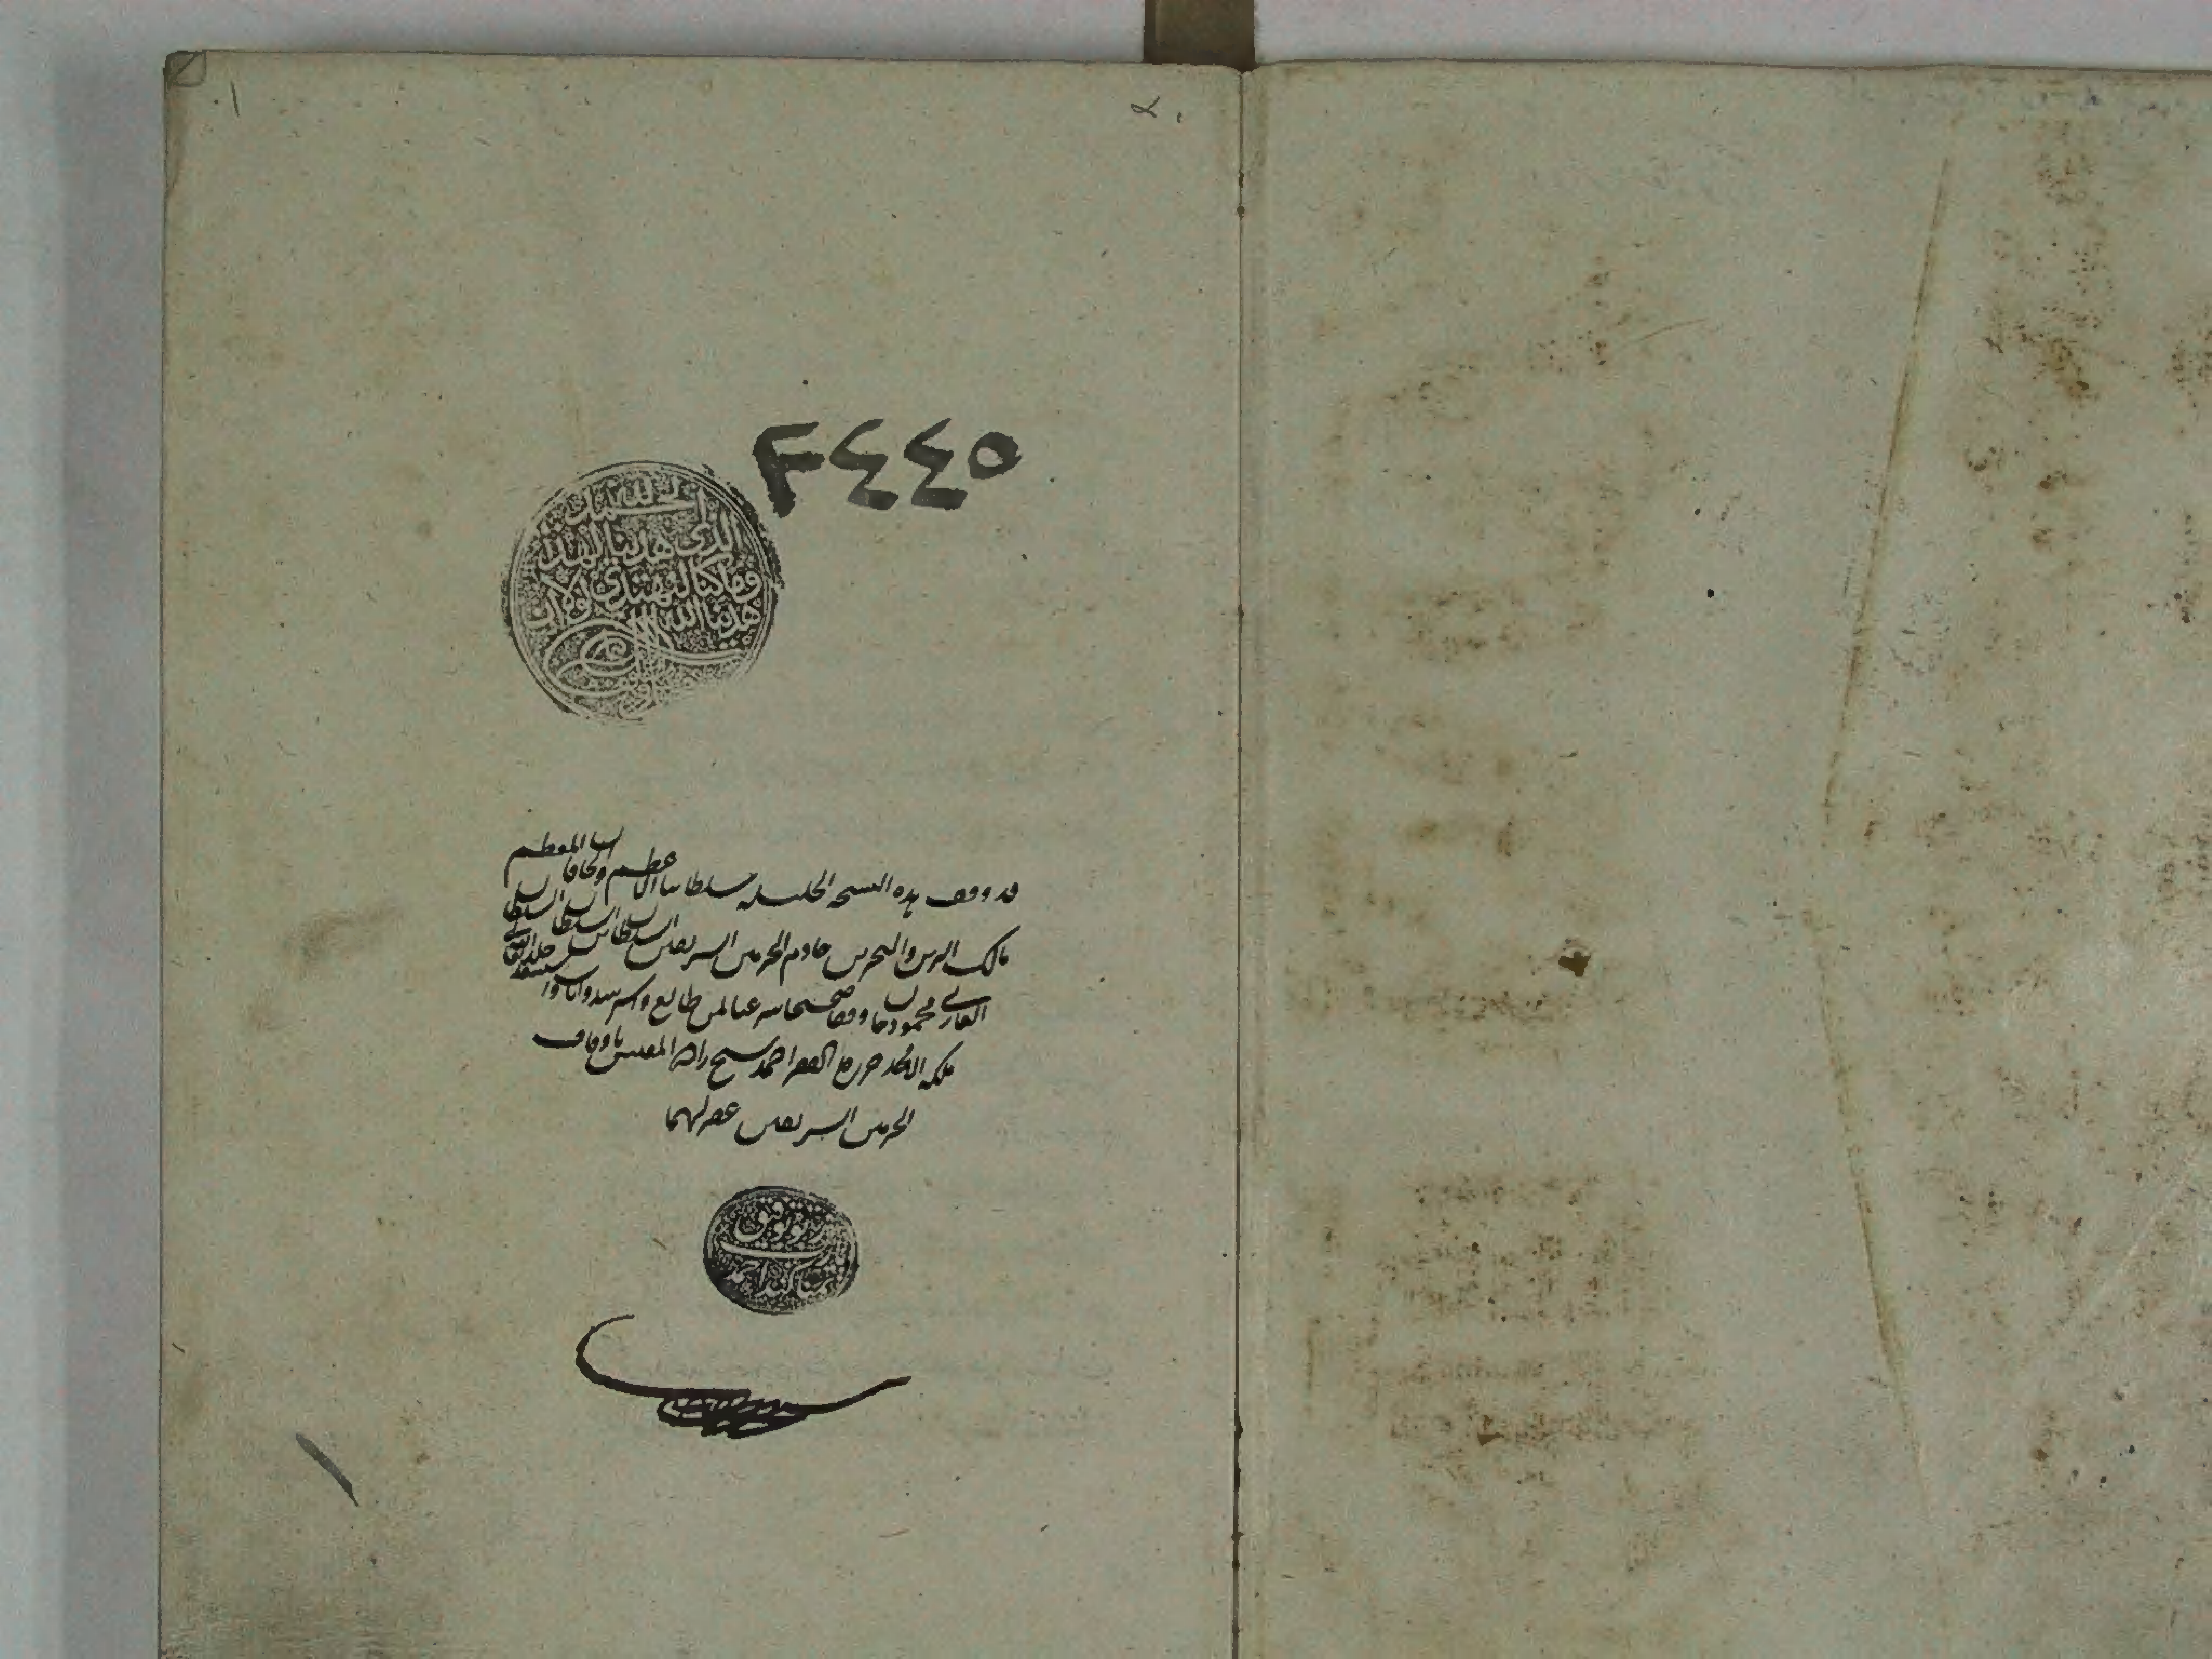 ٢٤٤٥
الحمد لله
الذي هدينا لهذا
وما كنا لنهتدي لولا ان
هدينا الله
قد وقف هذه النسخه الجليله سلطاننا الاعظم والخاقان المعظم
مالك البرين والبحرين خادم الحرمين الشريفين السلطان بن السلطان السلطان
الغازي محمود خان وقفا صحيحا شرعيا لمن طالع
حرره الفقير احمد شيخ زاده المفتش باوقاف
الحرمين الشريفين غفر لهما